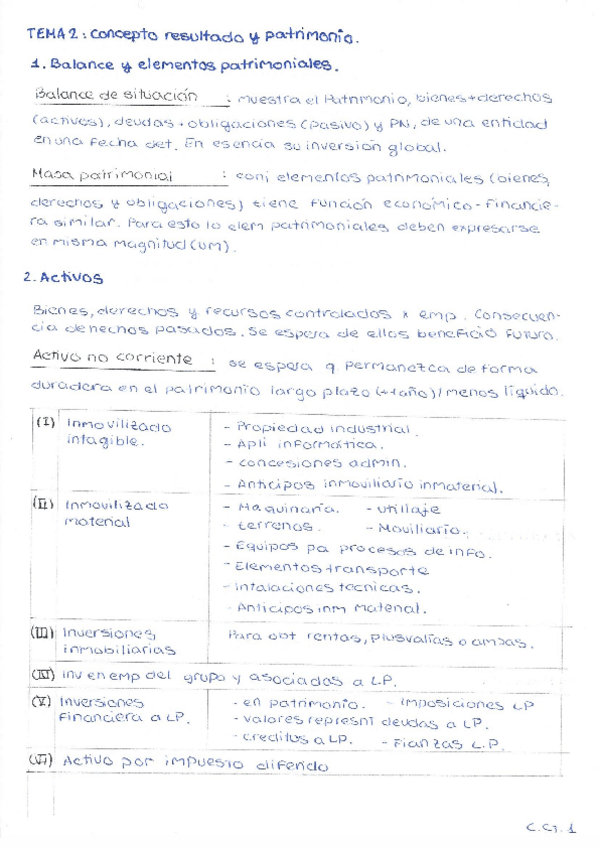 TEMA 2: Concepto resultado y patrimonio.
1. Balance y elementos patrimoniales.
Balance de situación : muestra el Patrimonio, bienes + derechos
(activos), deudas + obligaciones (pasivo) y PN, de una entidad
en una fecha det. En esencia su inversión global.
Masa patrimonial : conj elementos patrimoniales (bienes,
derechos y obligaciones) tiene función económico-financie-
ra similar. Para esto lo elem patrimoniales deben expresarse
en misma magnitud (um).
2. Activos
Bienes, derechos y recursos controlados x emp. Consecuen-
cia de hechos pasados. Se espera de ellos beneficio futuro.
Activo no corriente : se espera q permanezca de forma
duradera en el patrimonio largo plazo (+1año)/menos líquido.
(I) Inmovilizado intagible.
- Propiedad industrial.
- Apli informática.
- concesiones admin.
- Anticipos inmoviliario inmaterial.
(II) Inmovilizado material
- Maquinaria. - utillaje
- terrenos. - Moviliario.
- Equipos pa procesos de info.
- Elementos transporte
- Intalaciones tecnicas.
- Anticipos inm material.
(III) Inversiones inmobiliarias
Para obt rentas, plusvalías o ambas.
(IV) inv en emp del grupo y asociados a LP.
(V) Inversiones Financiera a LP.
- en patrimonio. - imposiciones LP
- valores represnt deudas a LP.
- creditos a LP. - Fianzas L.P.
(VI) Activo por impuesto diferido
C.G. 1